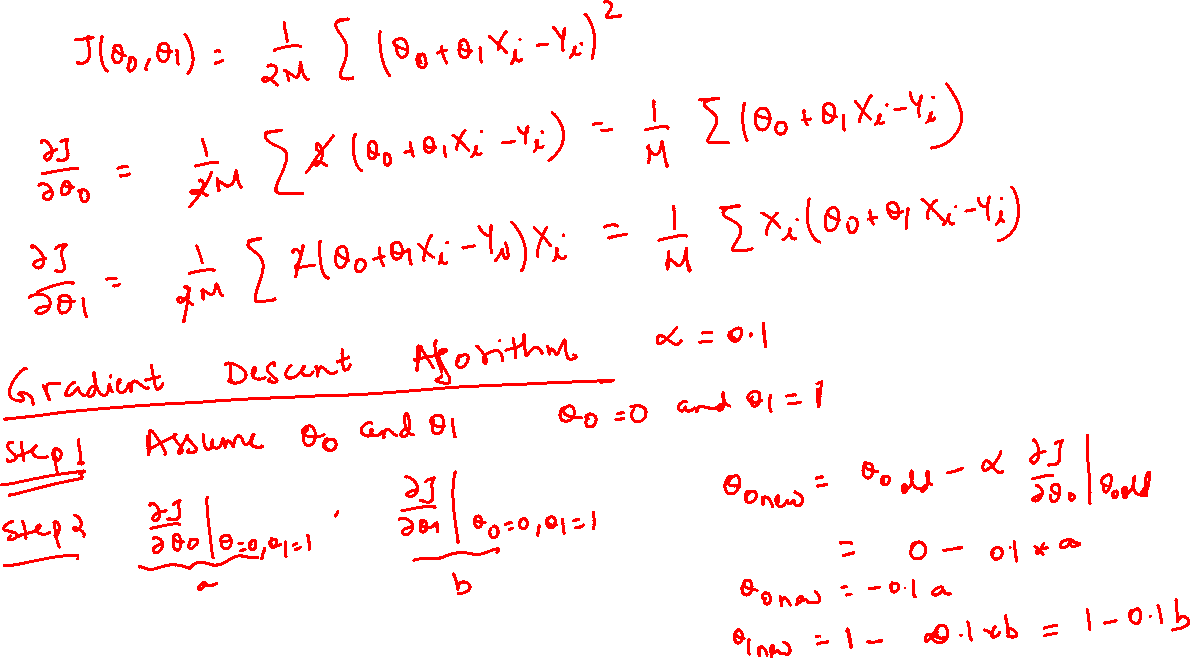 J(θ₀,θ₁) = 1/2M Σ (θ₀+θ₁Xᵢ−Yᵢ)²
∂J/∂θ₀ = 1/2M Σ 2 (θ₀+θ₁Xᵢ−Yᵢ) = 1/M Σ (θ₀+θ₁Xᵢ−Yᵢ)
∂J/∂θ₁ = 1/2M Σ 2(θ₀+θ₁Xᵢ−Yᵢ)Xᵢ = 1/M Σ Xᵢ(θ₀+θ₁Xᵢ−Yᵢ)
Gradient Descent Algorithm α = 0.1
Step 1 Assume θ₀ and θ₁ θ₀=0 and θ₁=1
Step 2 ∂J/∂θ₀|θ=0,θ₁=1 , ∂J/∂θ₁|θ₀=0,θ₁=1
a b
θ₀new = θ₀old − α ∂J/∂θ₀|θ₀old
= 0 − 0.1 * a
θ₀new = −0.1a
θ₁new = 1 − 0.1×b = 1−0.1b